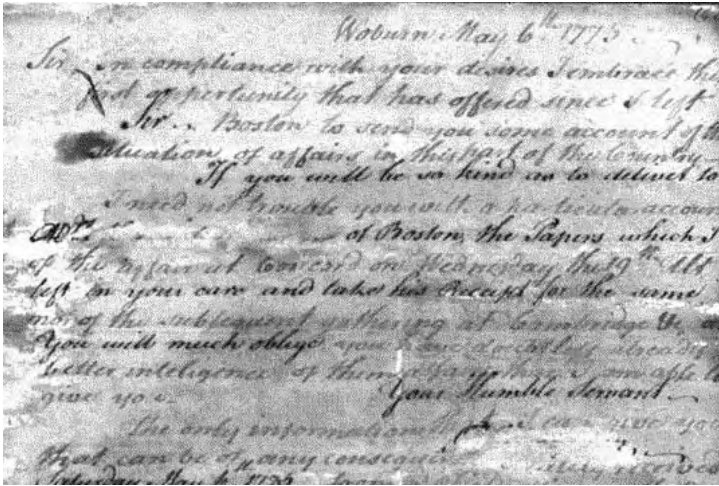 Woburn May 6th 1775
Sir, In compliance with your desires I embrace the
first opportunity that has offered since I left
Sir.. Boston to send you some account of the
situation of affairs in this part of the Country
If you will be so kind as to deliver to
I need not trouble you with a particular account
of Boston, the Papers which I
of the affair at Concord on Wednesday the 19th Ult
left in your care and take his Receipt for the same
nor of the subsequent gathering at Cambridge &c
You will much oblige you have doubtless already
better inteligence of them than I am able to
Your Humble Servant
give you.
The only information I can give you
that can be of any received
Saturday May 6. 1775